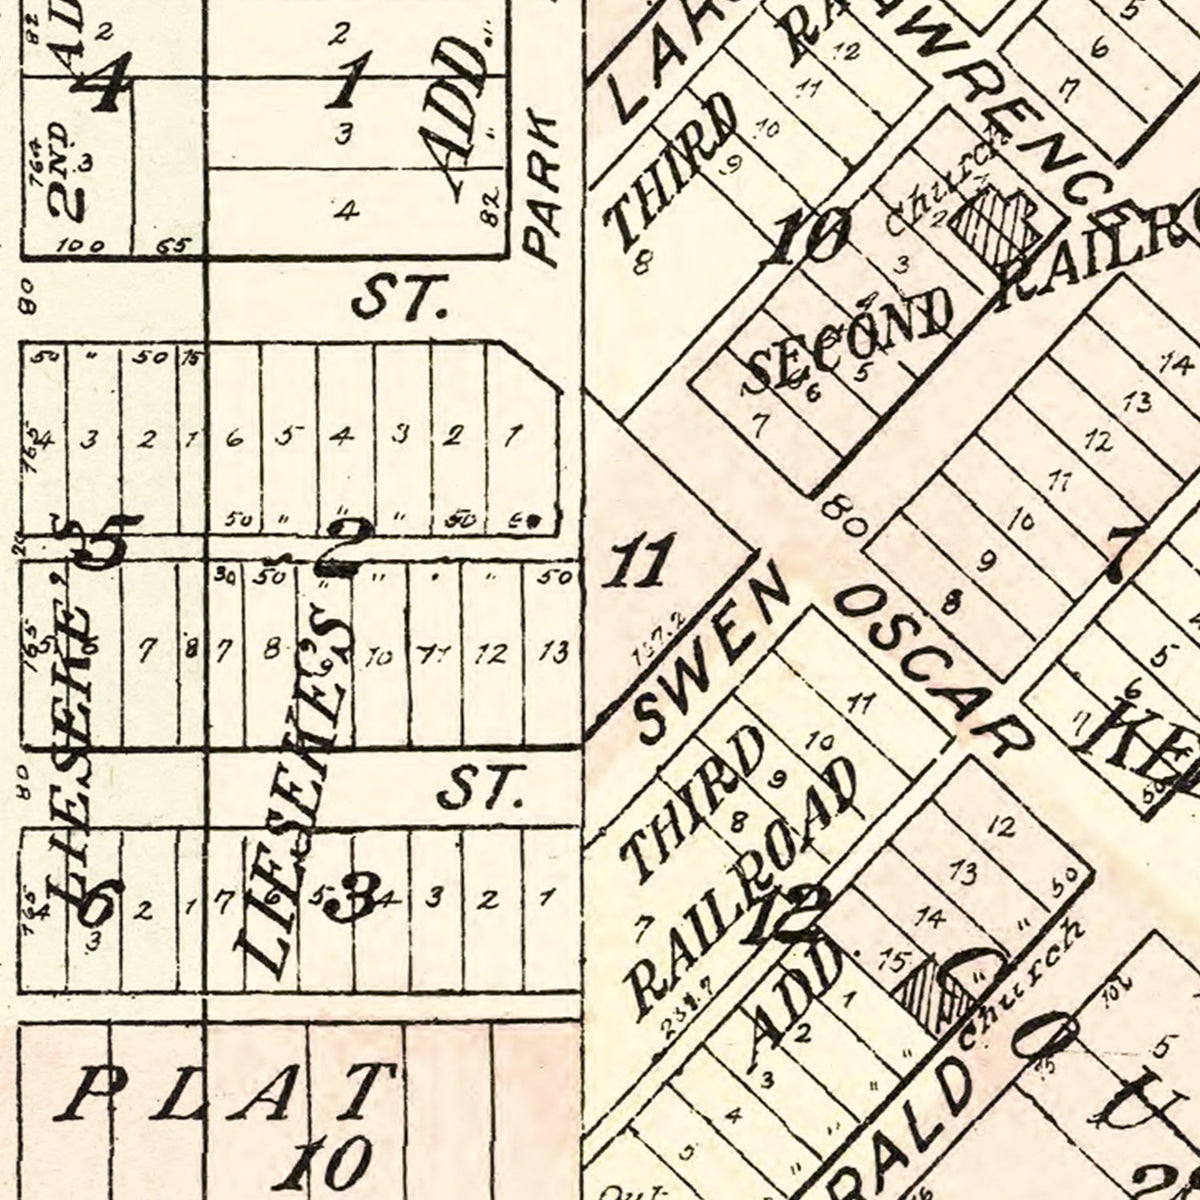 82
2
AD
4
2
1
ADD.
3
764
2ND
3
4
82
100
65
PARK
80
ST.
50
"
50
15
4
3
2
1
6
5
4
3
2
1
165
50
"
"
"
50
5
2
30
50
"
"
"
50
165
7
8
7
8
9
10
11
12
13
LIESEKE'S
LIESEKE'S
80
ST.
165
4
3
2
1
7
6
5
4
3
2
1
6
3
PLAT
10
THIRD
12
11
10
9
8
10
5
6
7
LAWRENCE
Church
2
3
4
5
6
7
SECOND
RAILRO
14
13
12
11
10
9
8
7
80
11
137.2
SWEN
OSCAR
4
5
6
7
KE
50
THIRD
RAILROAD
ADD.
11
10
9
8
7
12
238.7
12
13
14
15
50
"
"
Church
1
2
3
4
5
"
"
"
"
RALD
O
U
102
5
2
Out-